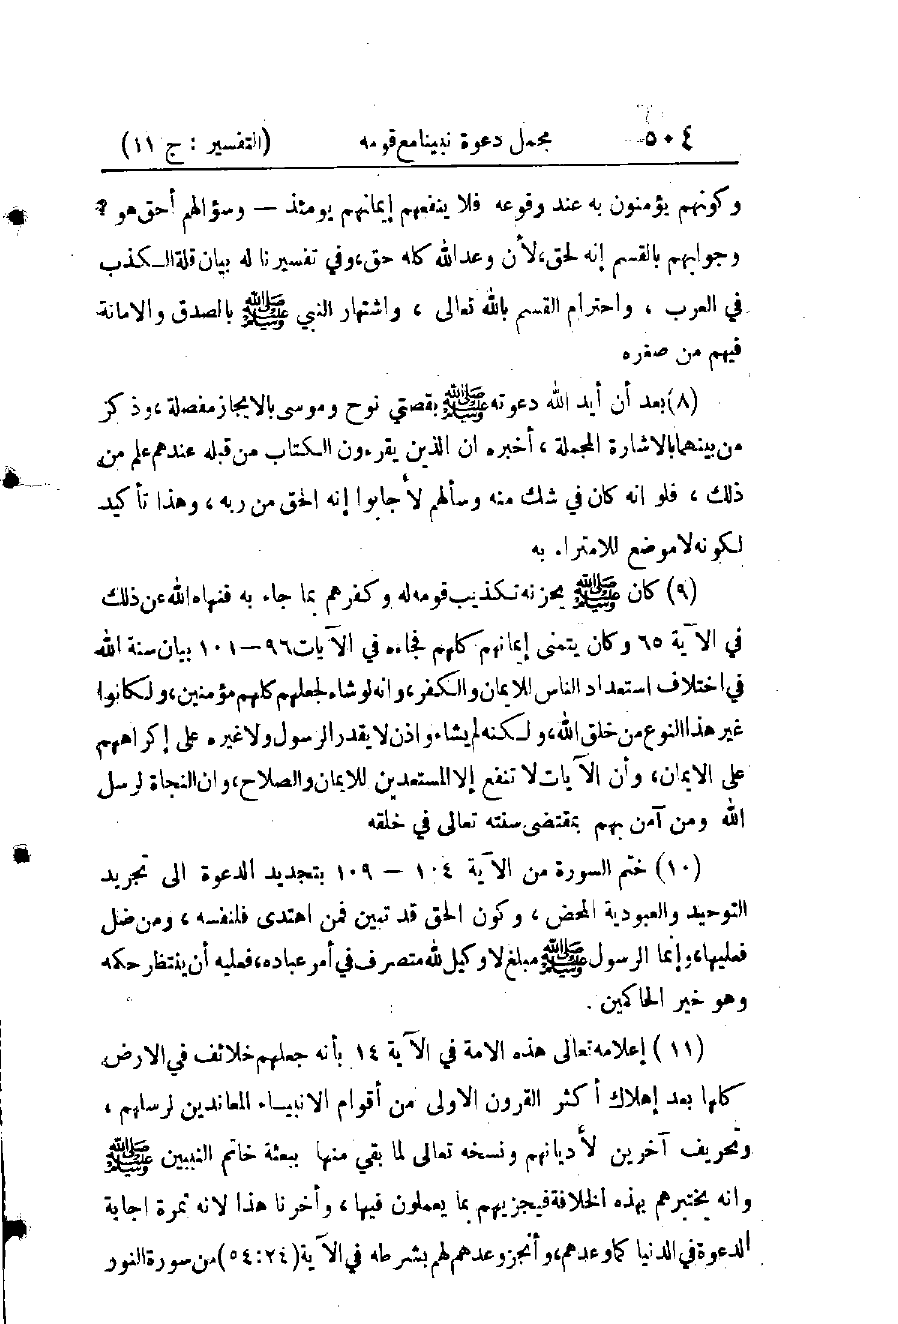 ٥٠٤ مجمل دعوة نبينا مع قومه (التفسير : ج ١١)
وكونهم يؤمنون به عند وقوعه فلا ينفعهم إيمانهم يومئذ — وسؤالهم أحق هو ؟
وجوابهم بالقسم إنه لحق، لأن وعد الله كله حق، وفي تفسيرنا له بيان قلة الكذب
في العرب ، واحترام القسم بالله تعالى ، واشتهار النبي ﷺ بالصدق والامانة
فيهم من صغره
(٨) بعد أن أيد الله دعوته ﷺ بقصتي نوح وموسى بالايجاز مفصلة ، وذكر
من بينهما بالاشارة المجملة ، أخبره ان الذين يقرءون الكتاب من قبله عندهم علم من
ذلك ، فلو انه كان في شك منه وسألهم لأجابوا إنه الحق من ربه ، وهذا تأكيد
لكونه لا موضع للامتراء به
(٩) كان ﷺ يحزنه تكذيب قومه له وكفرهم بما جاء به فنهاه الله عن ذلك
في الآية ٦٥ وكان يتمنى إيمانهم كلهم فجاءه في الآيات ٩٦ — ١٠١ بيان سنة الله
في اختلاف استعداد الناس للايمان والكفر، وانه لو شاء لجعلهم كلهم مؤمنين، ولكانوا
غير هذا النوع من خلق الله، ولكنه لم يشاء واذن لا يقدر الرسول ولا غيره على إكراههم
على الايمان، وأن الآيات لا تنفع إلا المستعدين للايمان والصلاح، وان النجاة لرسل
الله ومن آمن بهم بمقتضى سنته تعالى في خلقه
(١٠) ختم السورة من الآية ١٠٤ — ١٠٩ بتجديد الدعوة الى تجريد
التوحيد والعبودية المحض ، وكون الحق قد تبين فمن اهتدى فلنفسه ، ومن ضل
فعليها، وإنما الرسول ﷺ مبلغ لا وكيل لله متصرف في أمر عباده، فعليه أن ينتظر حكمه
وهو خير الحاكمين .
(١١) إعلامه تعالى هذه الامة في الآية ١٤ بأنه جعلهم خلائف في الارض
كلها بعد إهلاك أكثر القرون الاولى من أقوام الانبياء المعاندين لرسلهم ،
وتحريف آخرين لأديانهم ونسخه تعالى لما بقي منها ببعثة خاتم النبيين ﷺ
وانه يختبرهم بهذه الخلافة فيجزيهم بما يعملون فيها ، وأخرنا هذا لانه ثمرة اجابة
الدعوة في الدنيا كما وعدهم، وأنجز وعدهم لهم بشرطه في الآية (٢٤:٥٤) من سورة النور